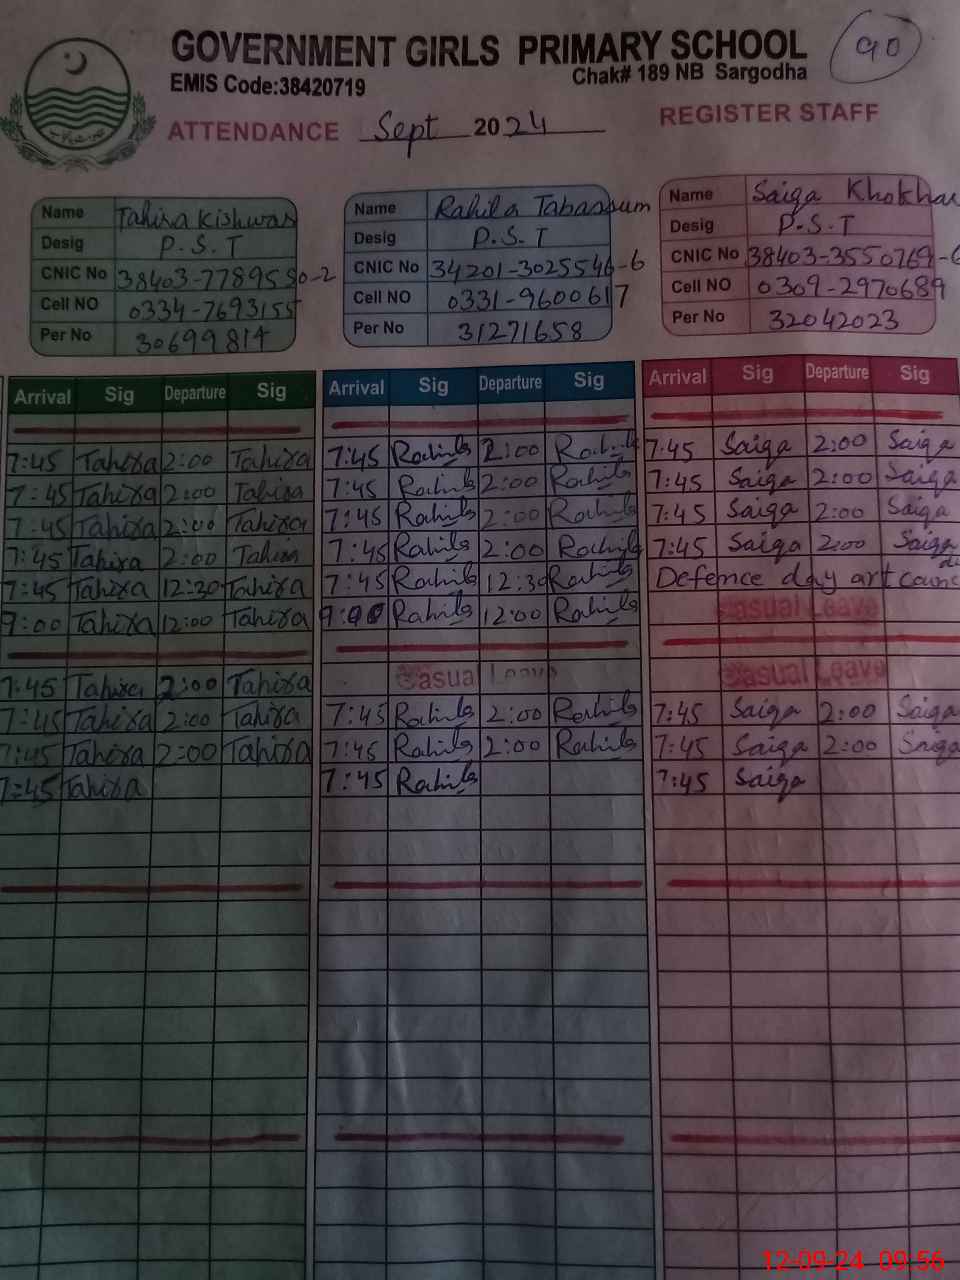 GOVERNMENT GIRLS PRIMARY SCHOOL
90
EMIS Code:38420719
Chak# 189 NB Sargodha
ATTENDANCE Sept 2024 REGISTER STAFF
Name Tahira Kishwar
Desig P.S.T
CNIC No 38403-7789550-2
Cell NO 0334-7693155
Per No 30699814
Name Rahila Tabassum
Desig P.S.T
CNIC No 34201-3025546-6
Cell NO 0331-9600617
Per No 31271658
Name Saiqa Khokhar
Desig P.S.T
CNIC No 38403-3550769-6
Cell NO 0309-2970689
Per No 32042023
Arrival Sig Departure Sig Arrival Sig Departure Sig Arrival Sig Departure Sig
7:45 Tahira 2:00 Tahira 7:45 Rahila 2:00 Rahila 7:45 Saiqa 2:00 Saiqa
7:45 Tahira 2:00 Tahira 7:45 Rahila 2:00 Rahila 7:45 Saiqa 2:00 Saiqa
7:45 Tahira 2:00 Tahira 7:45 Rahila 2:00 Rahila 7:45 Saiqa 2:00 Saiqa
7:45 Tahira 2:00 Tahira 7:45 Rahila 2:00 Rahila 7:45 Saiqa 2:00 Saiqa
7:45 Tahira 12:30 Tahira 7:45 Rahila 12:30 Rahila Defence day art
9:00 Tahira 12:00 Tahira 9:00 Rahila 12:00 Rahila Casual Leave
7:45 Tahira 2:00 Tahira Casual Leave Casual Leave
7:45 Tahira 2:00 Tahira 7:45 Rahila 2:00 Rahila 7:45 Saiqa 2:00 Saiqa
7:45 Tahira 2:00 Tahira 7:45 Rahila 2:00 Rahila 7:45 Saiqa 2:00 Saiqa
7:45 Tahira 7:45 Rahila 7:45 Saiqa
12-09-24 09:56